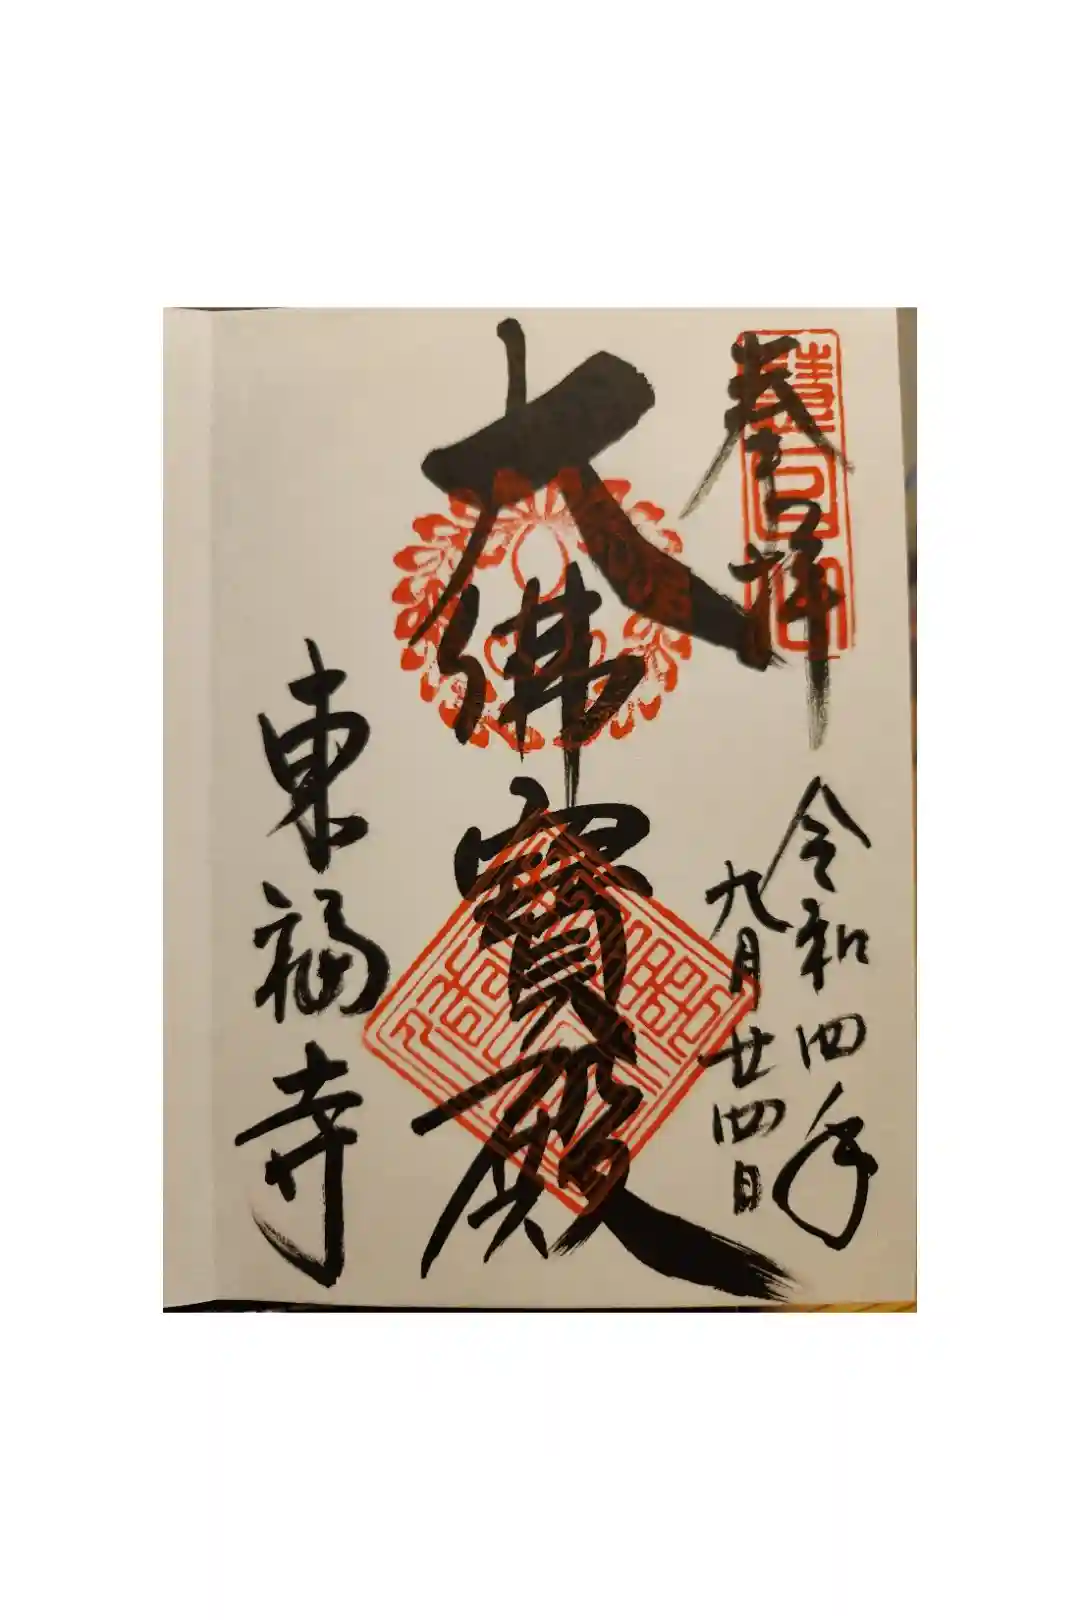 奉拝
令和四年
九月廿四日
大佛寳殿
東福寺